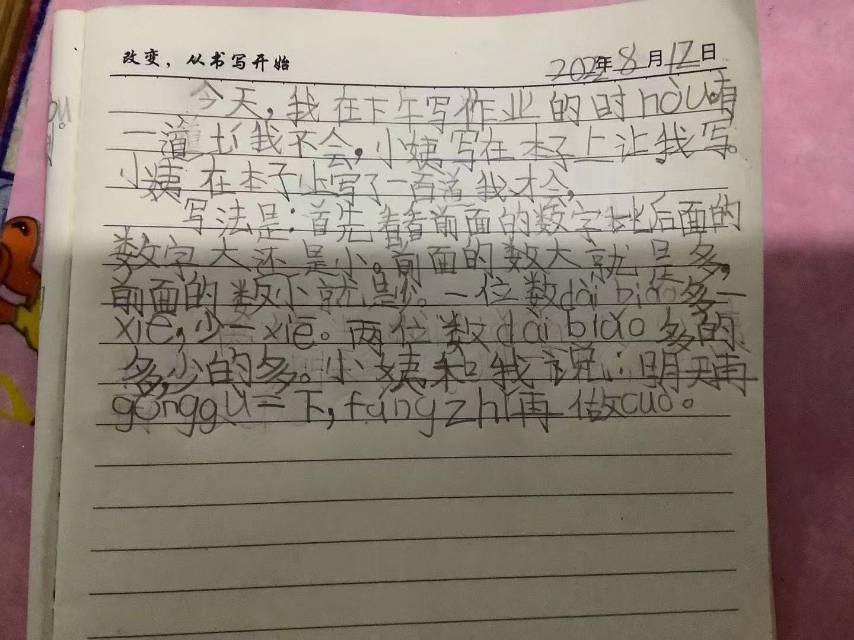 改变，从书写开始
2022年8月17日
今天，我在下午写作业的时hòu有
一道 我不会，小姨写在本子上让我写。
小姨在本子上写了一百道我才会。
写法是：首先看看前面的数字比后面的
数字大还是小。前面的数大就是多，
前面的数小就是少。一位数dài biǎo多一
xiē，少一xiē。两位数dài biǎo多的
多，少的多。小姨和我说：明天再
gǒng gǔ一下，fáng zhǐ再做cuò。